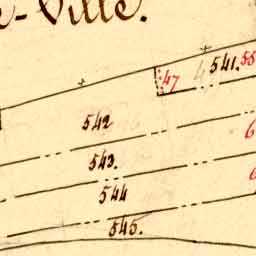 e-Ville.
541. 55
47
542
6
543.
544
545.